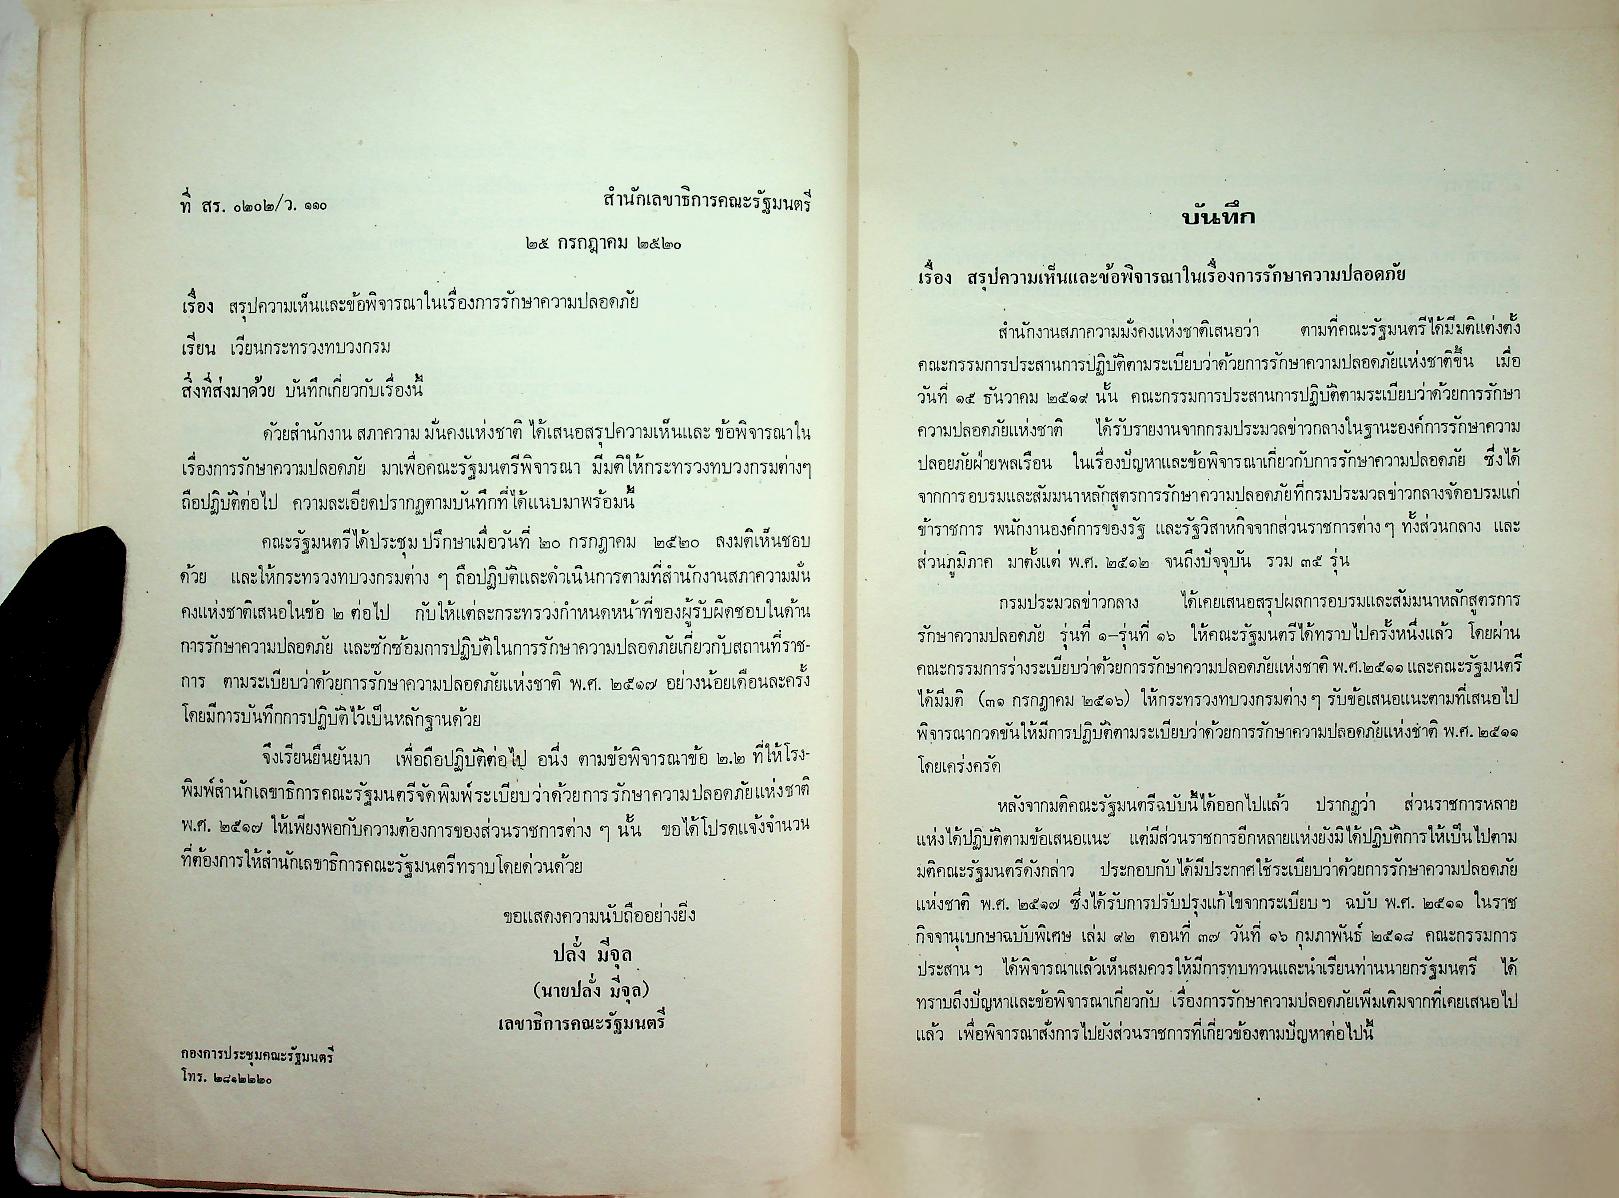 ที่ สร. ๐๒๐๒/ว. ๑๑๐ สำนักเลขาธิการคณะรัฐมนตรี
๒๕ กรกฎาคม ๒๕๒๐
เรื่อง สรุปความเห็นและข้อพิจารณาในเรื่องการรักษาความปลอดภัย
เรียน เวียนกระทรวงทบวงกรม
สิ่งที่ส่งมาด้วย บันทึกเกี่ยวกับเรื่องนี้
ด้วยสำนักงาน สภาความ มั่นคงแห่งชาติ ได้เสนอสรุปความเห็นและ ข้อพิจารณาใน
เรื่องการรักษาความปลอดภัย มาเพื่อคณะรัฐมนตรีพิจารณา มีมติให้กระทรวงทบวงกรมต่างๆ
ถือปฏิบัติต่อไป ความละเอียดปรากฏตามบันทึกที่ได้แนบมาพร้อมนี้
คณะรัฐมนตรีได้ประชุม ปรึกษาเมื่อวันที่ ๒๐ กรกฎาคม ๒๕๒๐ ลงมติเห็นชอบ
ด้วย และให้กระทรวงทบวงกรมต่าง ๆ ถือปฏิบัติและดำเนินการตามที่สำนักงานสภาความมั่น
คงแห่งชาติเสนอในข้อ ๒ ต่อไป กับให้แต่ละกระทรวงกำหนดหน้าที่ของผู้รับผิดชอบในด้าน
การรักษาความปลอดภัย และซักซ้อมการปฏิบัติในการรักษาความปลอดภัยเกี่ยวกับสถานที่ราช-
การ ตามระเบียบว่าด้วยการรักษาความปลอดภัยแห่งชาติ พ.ศ. ๒๕๑๗ อย่างน้อยเดือนละครั้ง
โดยมีการบันทึกการปฏิบัติไว้เป็นหลักฐานด้วย
จึงเรียนยืนยันมา เพื่อถือปฏิบัติต่อไป อนึ่ง ตามข้อพิจารณาข้อ ๒.๒ ที่ให้โรง-
พิมพ์สำนักเลขาธิการคณะรัฐมนตรีจัดพิมพ์ระเบียบว่าด้วยการรักษาความปลอดภัยแห่งชาติ
พ.ศ. ๒๕๑๗ ให้เพียงพอกับความต้องการของส่วนราชการต่าง ๆ นั้น ขอได้โปรดแจ้งจำนวน
ที่ต้องการให้สำนักเลขาธิการคณะรัฐมนตรีทราบโดยด่วนด้วย
ขอแสดงความนับถืออย่างยิ่ง
ปลั่ง มีจุล
(นายปลั่ง มีจุล)
เลขาธิการคณะรัฐมนตรี
กองการประชุมคณะรัฐมนตรี
โทร. ๒๘๑๒๒๒๐
บันทึก
เรื่อง สรุปความเห็นและข้อพิจารณาในเรื่องการรักษาความปลอดภัย
สำนักงานสภาความมั่งคงแห่งชาติเสนอว่า ตามที่คณะรัฐมนตรีได้มีมติแต่งตั้ง
คณะกรรมการประสานการปฏิบัติตามระเบียบว่าด้วยการรักษาความปลอดภัยแห่งชาติขึ้น เมื่อ
วันที่ ๑๕ ธันวาคม ๒๕๑๙ นั้น คณะกรรมการประสานการปฏิบัติตามระเบียบว่าด้วยการรักษา
ความปลอดภัยแห่งชาติ ได้รับรายงานจากกรมประมวลข่าวกลางในฐานะองค์การรักษาความ
ปลอยภัยฝ่ายพลเรือน ในเรื่องปัญหาและข้อพิจารณาเกี่ยวกับการรักษาความปลอดภัย ซึ่งได้
จากการ อบรมและสัมมนาหลักสูตรการรักษา ความปลอดภัยที่กรมประมวลข่าวกลางจัดอบรมแก่
ข้าราชการ พนักงานองค์การของรัฐ และรัฐวิสาหกิจจากส่วนราชการต่าง ๆ ทั้งส่วนกลาง และ
ส่วนภูมิภาค มาตั้งแต่ พ.ศ. ๒๕๑๒ จนถึงปัจจุบัน รวม ๓๕ รุ่น
กรมประมวลข่าวกลาง ได้เคยเสนอสรุปผลการอบรมและสัมมนาหลักสูตรการ
รักษาความปลอดภัย รุ่นที่ ๑–รุ่นที่ ๑๖ ให้คณะรัฐมนตรีได้ทราบไปครั้งหนึ่งแล้ว โดยผ่าน
คณะกรรมการร่างระเบียบว่าด้วยการรักษาความปลอดภัยแห่งชาติ พ.ศ.๒๕๑๑ และคณะรัฐมนตรี
ได้มีมติ (๓๑ กรกฎาคม ๒๕๑๖) ให้กระทรวงทบวงกรมต่าง ๆ รับข้อเสนอแนะตามที่เสนอไป
พิจารณากวดขันให้มีการปฏิบัติตามระเบียบว่าด้วยการรักษาความปลอดภัยแห่งชาติ พ.ศ. ๒๕๑๑
โดยเคร่งครัด
หลังจากมติคณะรัฐมนตรีฉบับนี้ได้ออกไปแล้ว ปรากฏว่า ส่วนราชการหลาย
แห่งได้ปฏิบัติตามข้อเสนอแนะ แต่มีส่วนราชการอีกหลายแห่งยังมิได้ปฏิบัติการให้เป็นไปตาม
มติคณะรัฐมนตรีดังกล่าว ประกอบกับได้มีประกาศใช้ระเบียบว่าด้วยการรักษาความปลอดภัย
แห่งชาติ พ.ศ. ๒๕๑๗ ซึ่งได้รับการปรับปรุงแก้ไขจากระเบียบฯ ฉบับ พ.ศ. ๒๕๑๑ ในราช
กิจจานุเบกษาฉบับพิเศษ เล่ม ๙๒ ตอนที่ ๓๗ วันที่ ๑๖ กุมภาพันธ์ ๒๕๑๘ คณะกรรมการ
ประสานฯ ได้พิจารณาแล้วเห็นสมควรให้มีการทบทวนและนำเรียนท่านนายกรัฐมนตรี ได้
ทราบถึงปัญหาและข้อพิจารณาเกี่ยวกับ เรื่องการรักษาความปลอดภัยเพิ่มเติมจากที่เคยเสนอไป
แล้ว เพื่อพิจารณาสั่งการไปยังส่วนราชการที่เกี่ยวข้องตามปัญหาต่อไปนี้